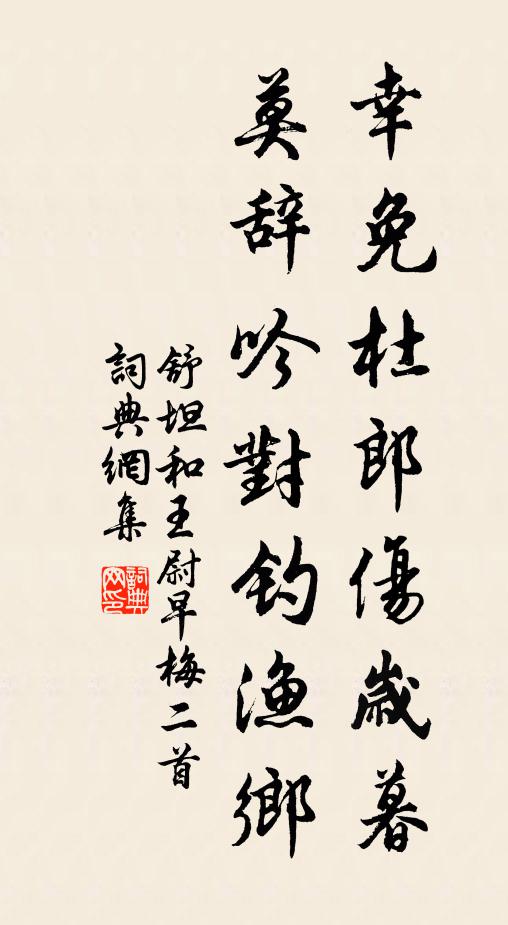 幸免杜郎傷歲暮
莫辭吟對釣漁鄉
舒坦和王尉早梅二首
詞典網集
詞典網印